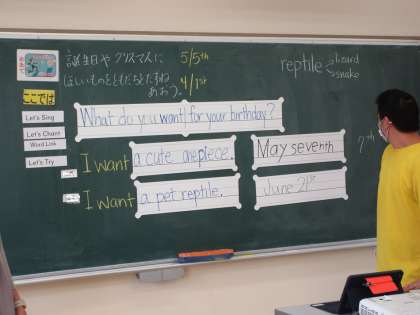 めあて
誕生日や クリスマスに
ほしいものをともだちとたずね
あおう。
5/5th
4/1st
reptile lizard
snake
ここでは
Let's Sing
Let's Chant
Word Link
Let's Try
What do you want for your birthday?
I want a cute onepiece.
May seventh
7th
I want a pet reptile.
June 21st